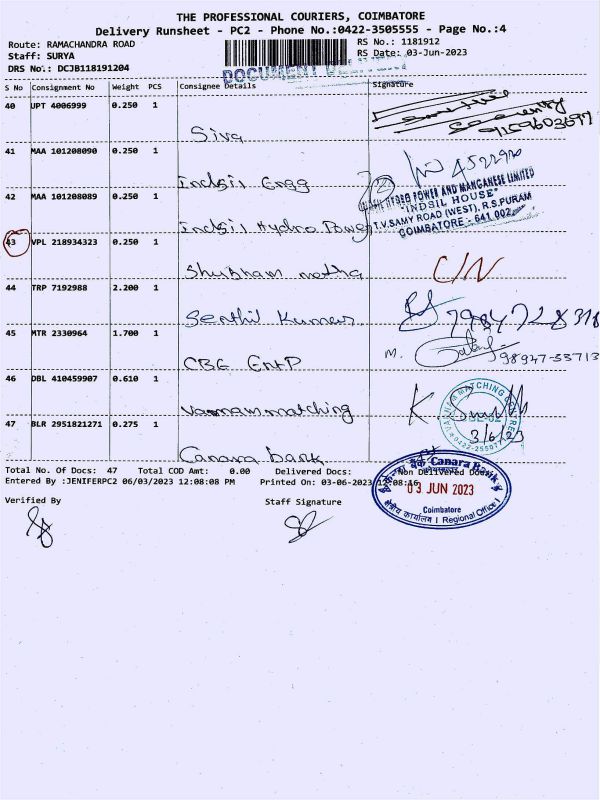 THE PROFESSIONAL COURIERS, COIMBATORE
Delivery Runsheet - PC2 - Phone No.:0422-3505555 - Page No.:4
Route: RAMACHANDRA ROAD
RS No.: 1181912
Staff: SURYA
RS Date: 03-Jun-2023
DRS No.: DCJB118191204
DOCUMENT
S No Consignment No Weight PCS Consignee Details Signature
40 UPT 4006999 0.250 1
Siva
9159603697
41 MAA 101208090 0.250 1
Indsil Engg
42 MAA 101208089 0.250 1
Indsil Hydro Power
HYDRO POWER AND MANGANESE LIMITED
"INDSIL HOUSE"
T.V.SAMY ROAD (WEST), R.S.PURAM
COIMBATORE - 641 002
43 VPL 218934323 0.250 1
Shubham
C/N
44 TRP 7192988 2.200 1
Senthil Kumar
45 MTR 2330964 1.700 1
CBE EntP
M.
98947-55713
46 DBL 410459907 0.610 1
matching
K
3/6/23
47 BLR 2951821271 0.275 1
Canara bank
Total No. Of Docs: 47 Total COD Amt: 0.00 Delivered Docs: Non Delivered Docs
Entered By :JENIFERPC2 06/03/2023 12:08:08 PM Printed On: 03-06-2023 12:08:16
केनरा बैंक Canara Bank
03 JUN 2023
Coimbatore
क्षेत्रीय कार्यालय I Regional Office I
Verified By Staff Signature